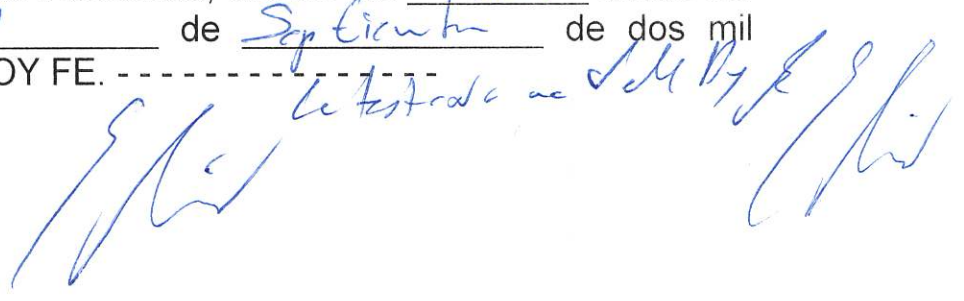 de Septiembre de dos mil
OY FE. - - - - - - - - - - - - - - - -
Lo testado no vale Doy fe